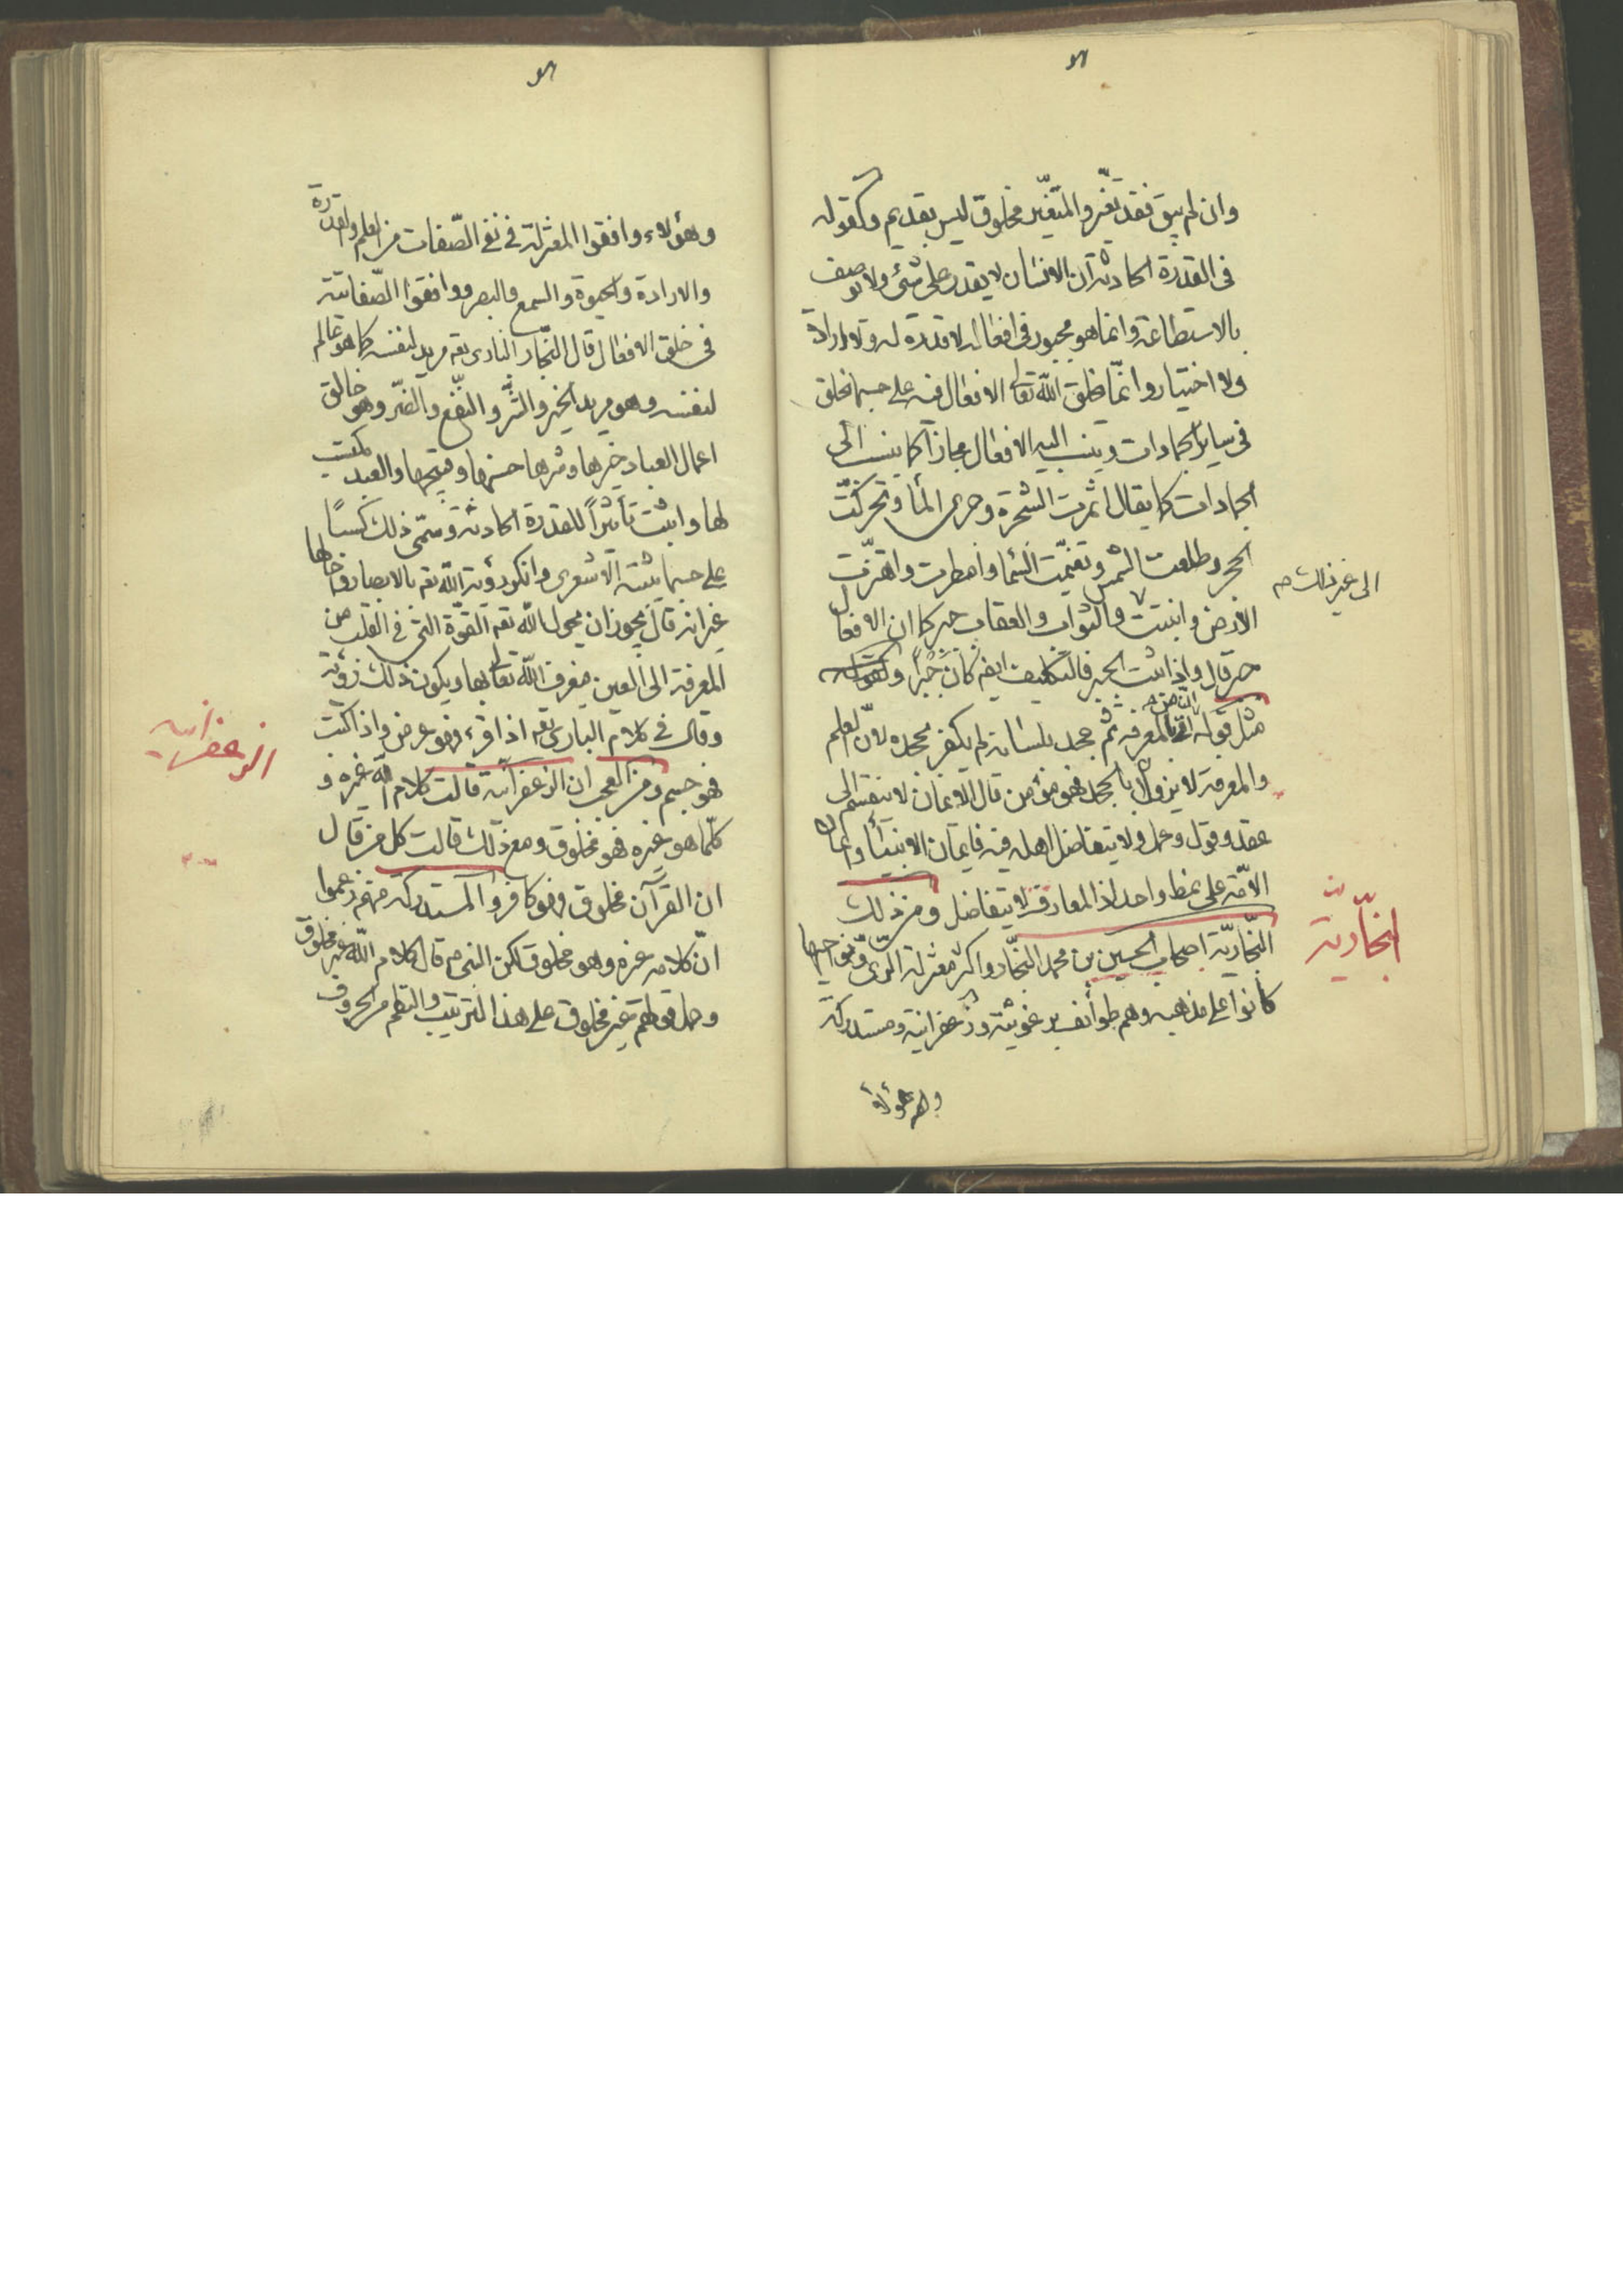 وان لم يبق فقد تغيّر والمتغيّر مخلوق ليس بقديم وكقوله
فى القدرة الحادثة ان الانسان لا يقدر على شئ ولا يوصف
بالاستطاعة وانما هو مجبور فى افعاله لا قدرة له ولا ارادة
ولا اختيار وانّما يخلق الله تعالى الافعال فيه على حسب ما يخلق
فى ساير الجمادات وينسب اليه الافعال مجازا كما ينسب الى
الجمادات كما يقال اثمرت الشجرة وجرى الماء وتحركت
الحجر وطلعت الشمس وتغيّمت السماء وامطرت واهتزّت
الى غير ذلك
الارض وانبتت والثواب والعقاب جبر كما ان الافعال
جبر قال واذا ثبت الجبر فالتكليف ايضا كان جبرا
مثل قوله بالمعرفة ثم جحد بلسانه لم يكفر بجحده لانّ العلم
والمعرفة لا يزول بالجحد فهو مؤمن قال الايمان لا ينقسم الى
عقد وقول وعمل ولا يتفاضل اهله فيه فايمان الانبياء وايمان
الامّة على نمط واحد اذ المعارف لا يتفاضل ومن ذلك
النجّاريّة
النجّاريّة اصحاب الحسين بن محمد النجّار واكثر معتزلة الرى وحواليها
كانوا على مذهبه وهم طوائف برغوثية وزعفرانية ومستدركة
وهؤلاء
وهؤلاء وافقوا المعتزلة فى نفى الصّفات من العلم والقدرة
والارادة والحيوة والسمع والبصر ووافقوا الصّفاتية
فى خلق الافعال قال النجّار البارى تعه مريد لنفسه كما هو عالم
لنفسه وهو مريد الخير والشّر والنفع والضّر وهو خالق
اعمال العباد خيرها وشرها حسنها وقبيحها والعبد مكتسب
لها واثبت تأثيراً للقدرة الحادثة وسمّى ذلك كسباً
على حسب ما يثبته الاشعرى وانكر رؤية الله تعه بالابصار واحالها
غير انه قال يجوز ان يحول الله تعه القوّة التى فى القلب من
المعرفة الى العين فيعرف الله تعالى بها ويكون ذلك رؤية
وقال فى كلام البارى تعه اذا قرء فهو عرض واذا كتب
الزعفرانيه
فهو جسم ومن العجب ان الزعفرانية قالت كلام الله غيره و
كلّما هو غيره فهو مخلوق ومع ذلك قالت كل من قال
ان القرآن مخلوق فهو كافر والمستدركة منهم زعموا
انّ كلامه غيره وهو مخلوق لكن النبى م قال كلام الله غير مخلوق
وحمل قولهم غير مخلوق على هذا الترتيب والنظم من الحروف